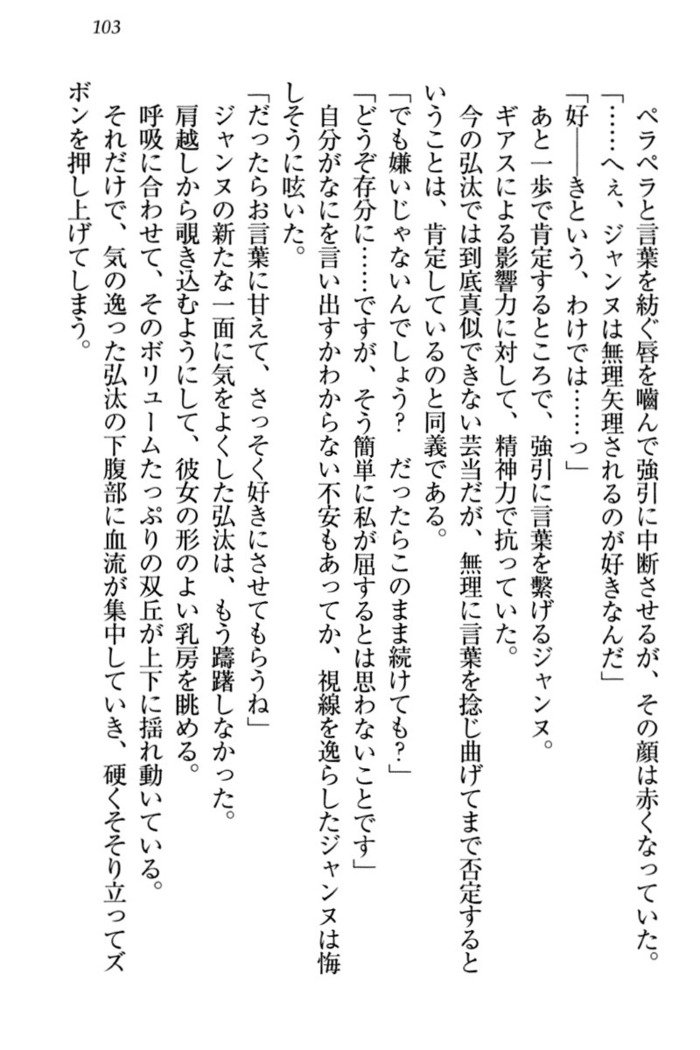 103
ペラペラと言葉を紡ぐ唇を噛んで強引に中断させるが、その顔は赤くなっていた。
「……へぇ、ジャンヌは無理矢理されるのが好きなんだ」
「好――きという、わけでは……っ」
あと一歩で肯定するところで、強引に言葉を繋げるジャンヌ。
ギアスによる影響力に対して、精神力で抗っていた。
今の弘汰では到底真似できない芸当だが、無理に言葉を捻じ曲げてまで否定すると
いうことは、肯定しているのと同義である。
「でも嫌いじゃないんでしょう? だったらこのまま続けても?」
「どうぞ存分に……ですが、そう簡単に私が屈するとは思わないことです」
自分がなにを言い出すかわからない不安もあってか、視線を逸らしたジャンヌは悔
しそうに呟いた。
「だったらお言葉に甘えて、さっそく好きにさせてもらうね」
ジャンヌの新たな一面に気をよくした弘汰は、もう躊躇しなかった。
肩越しから覗き込むようにして、彼女の形のよい乳房を眺める。
呼吸に合わせて、そのボリュームたっぷりの双丘が上下に揺れ動いている。
それだけで、気の逸った弘汰の下腹部に血流が集中していき、硬くそそり立ってズ
ボンを押し上げてしまう。